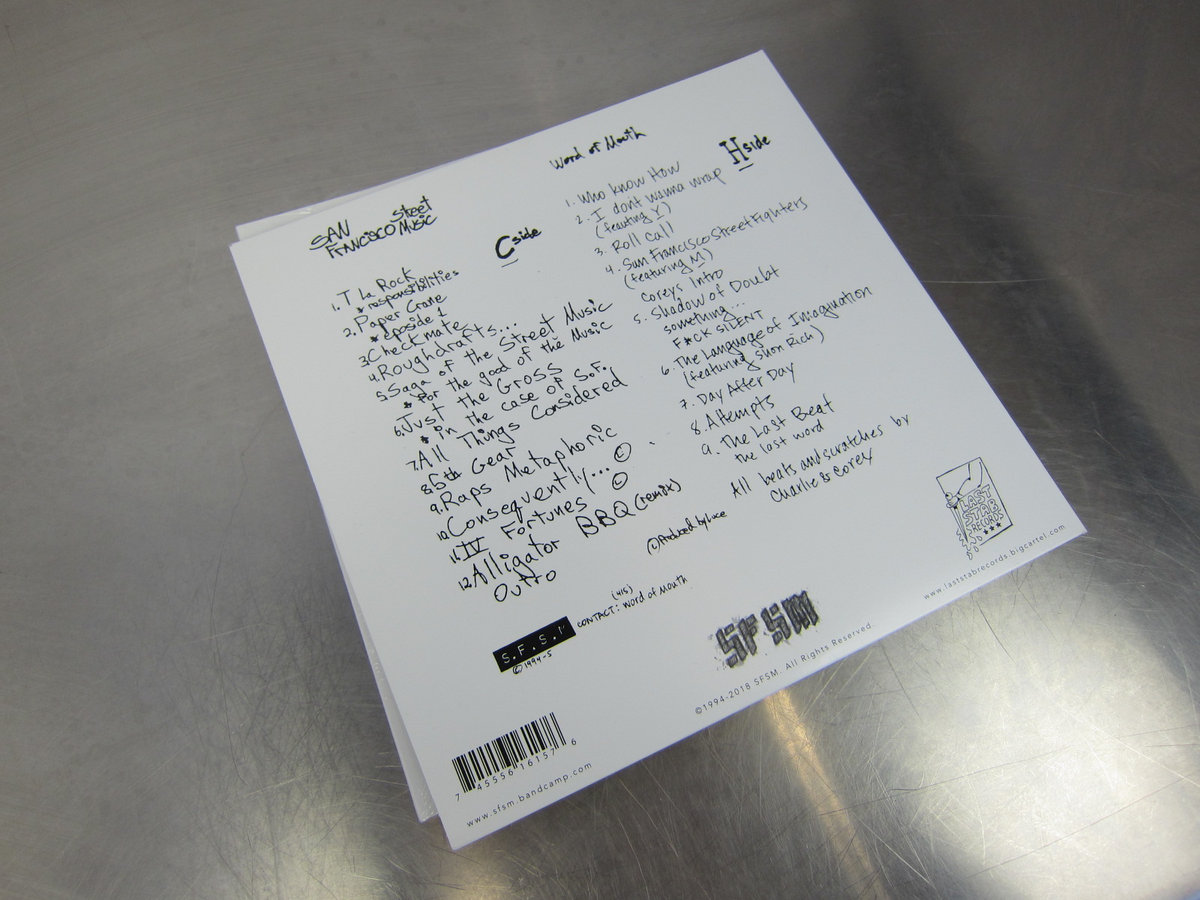 SAN
FRANCISCO Street
Music
C side
1. T La Rock
* responsibilities
2. Paper Crane
* eposide 1
3. Checkmate
4. Roughdrafts...
5. Saga of the Street Music
* For the good of the Music
6. Just the Gross
* in the case of S.F.
7. All Things Considered
8. 5th Gear
9. Raps Metaphoric
10. Consequently... ©
11. IV Fortunes ©
12. Alligator BBQ (remix)
Outro
Word of Mouth
H side
1. Who know How
2. I dont wanna wrap
(feauting Y)
3. Roll Call
4. San Francisco Street Fighters
(featuring M)
Coreys Intro
5. Shadow of Doubt
something...
F*CK SILENT
6. The Language of Imagination
(featuring Shon Rich)
7. Day After Day
8. Attempts
9. The Last Beat
the last word
All beats and scratches by
Charlie & Corey
(©) Produced by Luce
S.F.S.
© 1994-5
(415)
CONTACT: word of mouth
SFSM
©1994-2018 SFSM. All Rights Reserved.
LAST
STAB
RECORDS
www.laststabrecords.bigcartel.com
7 45556 16157 6
www.sfsm.bandcamp.com